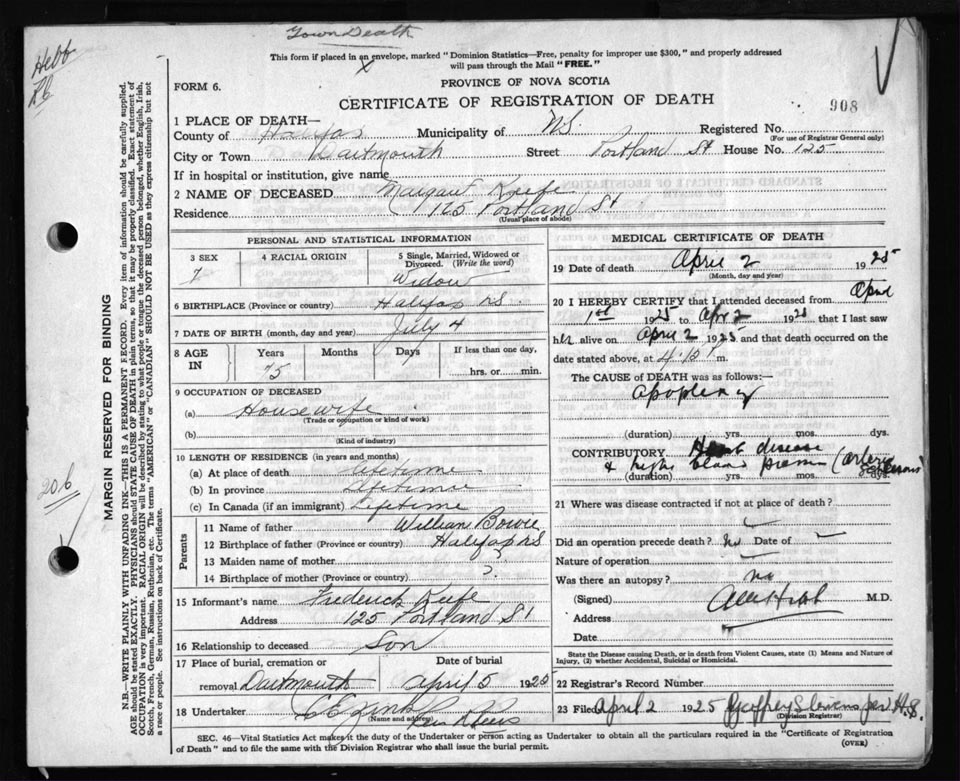 Town Death
Hebb
This form if placed in an envelope, marked "Dominion Statistics—Free, penalty for improper use $300," and properly addressed
will pass through the Mail "FREE."
FORM 6.
PROVINCE OF NOVA SCOTIA
CERTIFICATE OF REGISTRATION OF DEATH
908
1 PLACE OF DEATH—
County of Halifax Municipality of NS Registered No.
(For use of Registrar General only)
City or Town Dartmouth Street Portland St House No. 125
If in hospital or institution, give name
2 NAME OF DECEASED Margaret Keefe
Residence 125 Portland St
(Usual place of abode)
PERSONAL AND STATISTICAL INFORMATION
3 SEX 4 RACIAL ORIGIN 5 Single, Married, Widowed or
Divorced. (Write the word)
Widow
6 BIRTHPLACE (Province or country) Halifax NS.
7 DATE OF BIRTH (month, day and year) July 4
8 AGE IN Years Months Days If less than one day,
75 hrs. or min.
9 OCCUPATION OF DECEASED
(a) Housewife
(Trade or occupation or kind of work)
(b)
(Kind of industry)
10 LENGTH OF RESIDENCE (in years and months)
(a) At place of death Lifetime
(b) In province Lifetime
(c) In Canada (if an immigrant) Lifetime
Parents
11 Name of father William Bowie
12 Birthplace of father (Province or country) Halifax NS
13 Maiden name of mother
14 Birthplace of mother (Province or country) ?
15 Informant's name Frederick Keefe
Address 125 Portland St
16 Relationship to deceased Son
17 Place of burial, cremation or Date of burial
removal Dartmouth April 5 1925
18 Undertaker
(Name and address)
MEDICAL CERTIFICATE OF DEATH
19 Date of death April 2 1925
(Month, day and year)
20 I HEREBY CERTIFY that I attended deceased from April
1st 1925 to Apr 2 1925 that I last saw
her alive on April 2 1925 and that death occurred on
the date stated above, at 4.10 m.
The CAUSE of DEATH was as follows:—
Apoplexy
(duration) yrs. mos. dys.
CONTRIBUTORY Heart disease
& high blood pressure (arterio
(duration) yrs. mos. dys.
21 Where was disease contracted if not at place of death?
Did an operation precede death? No Date of
Nature of operation
Was there an autopsy? no
(Signed) Hebb M.D.
Address
Date
State the Disease causing Death, or in death from Violent Causes, state (1) Means and Nature of
Injury, (2) whether Accidental, Suicidal or Homicidal.
22 Registrar's Record Number
23 Filed April 2 1925
(Division Registrar)
SEC. 46—Vital Statistics Act makes it the duty of the Undertaker or person acting as Undertaker to obtain all the particulars required in the "Certificate of Registration
of Death" and to file the same with the Division Registrar who shall issue the burial permit.
(OVER)
MARGIN RESERVED FOR BINDING
N.B.—WRITE PLAINLY WITH UNFADING INK—THIS IS A PERMANENT RECORD. Every item of information should be carefully supplied.
AGE should be stated EXACTLY. PHYSICIANS should STATE CAUSE OF DEATH in plain terms, so that it may be properly classified. Exact statement of
OCCUPATION is very important. RACIAL ORIGIN will be described by stating to what people or tongue the deceased person belonged, whether English, Irish,
Scotch, French, German, Russian, Ruthenian, etc. The terms "AMERICAN" or "CANADIAN" SHOULD NOT BE USED as they express citizenship but not
a race or people. See instructions on back of Certificate.
206